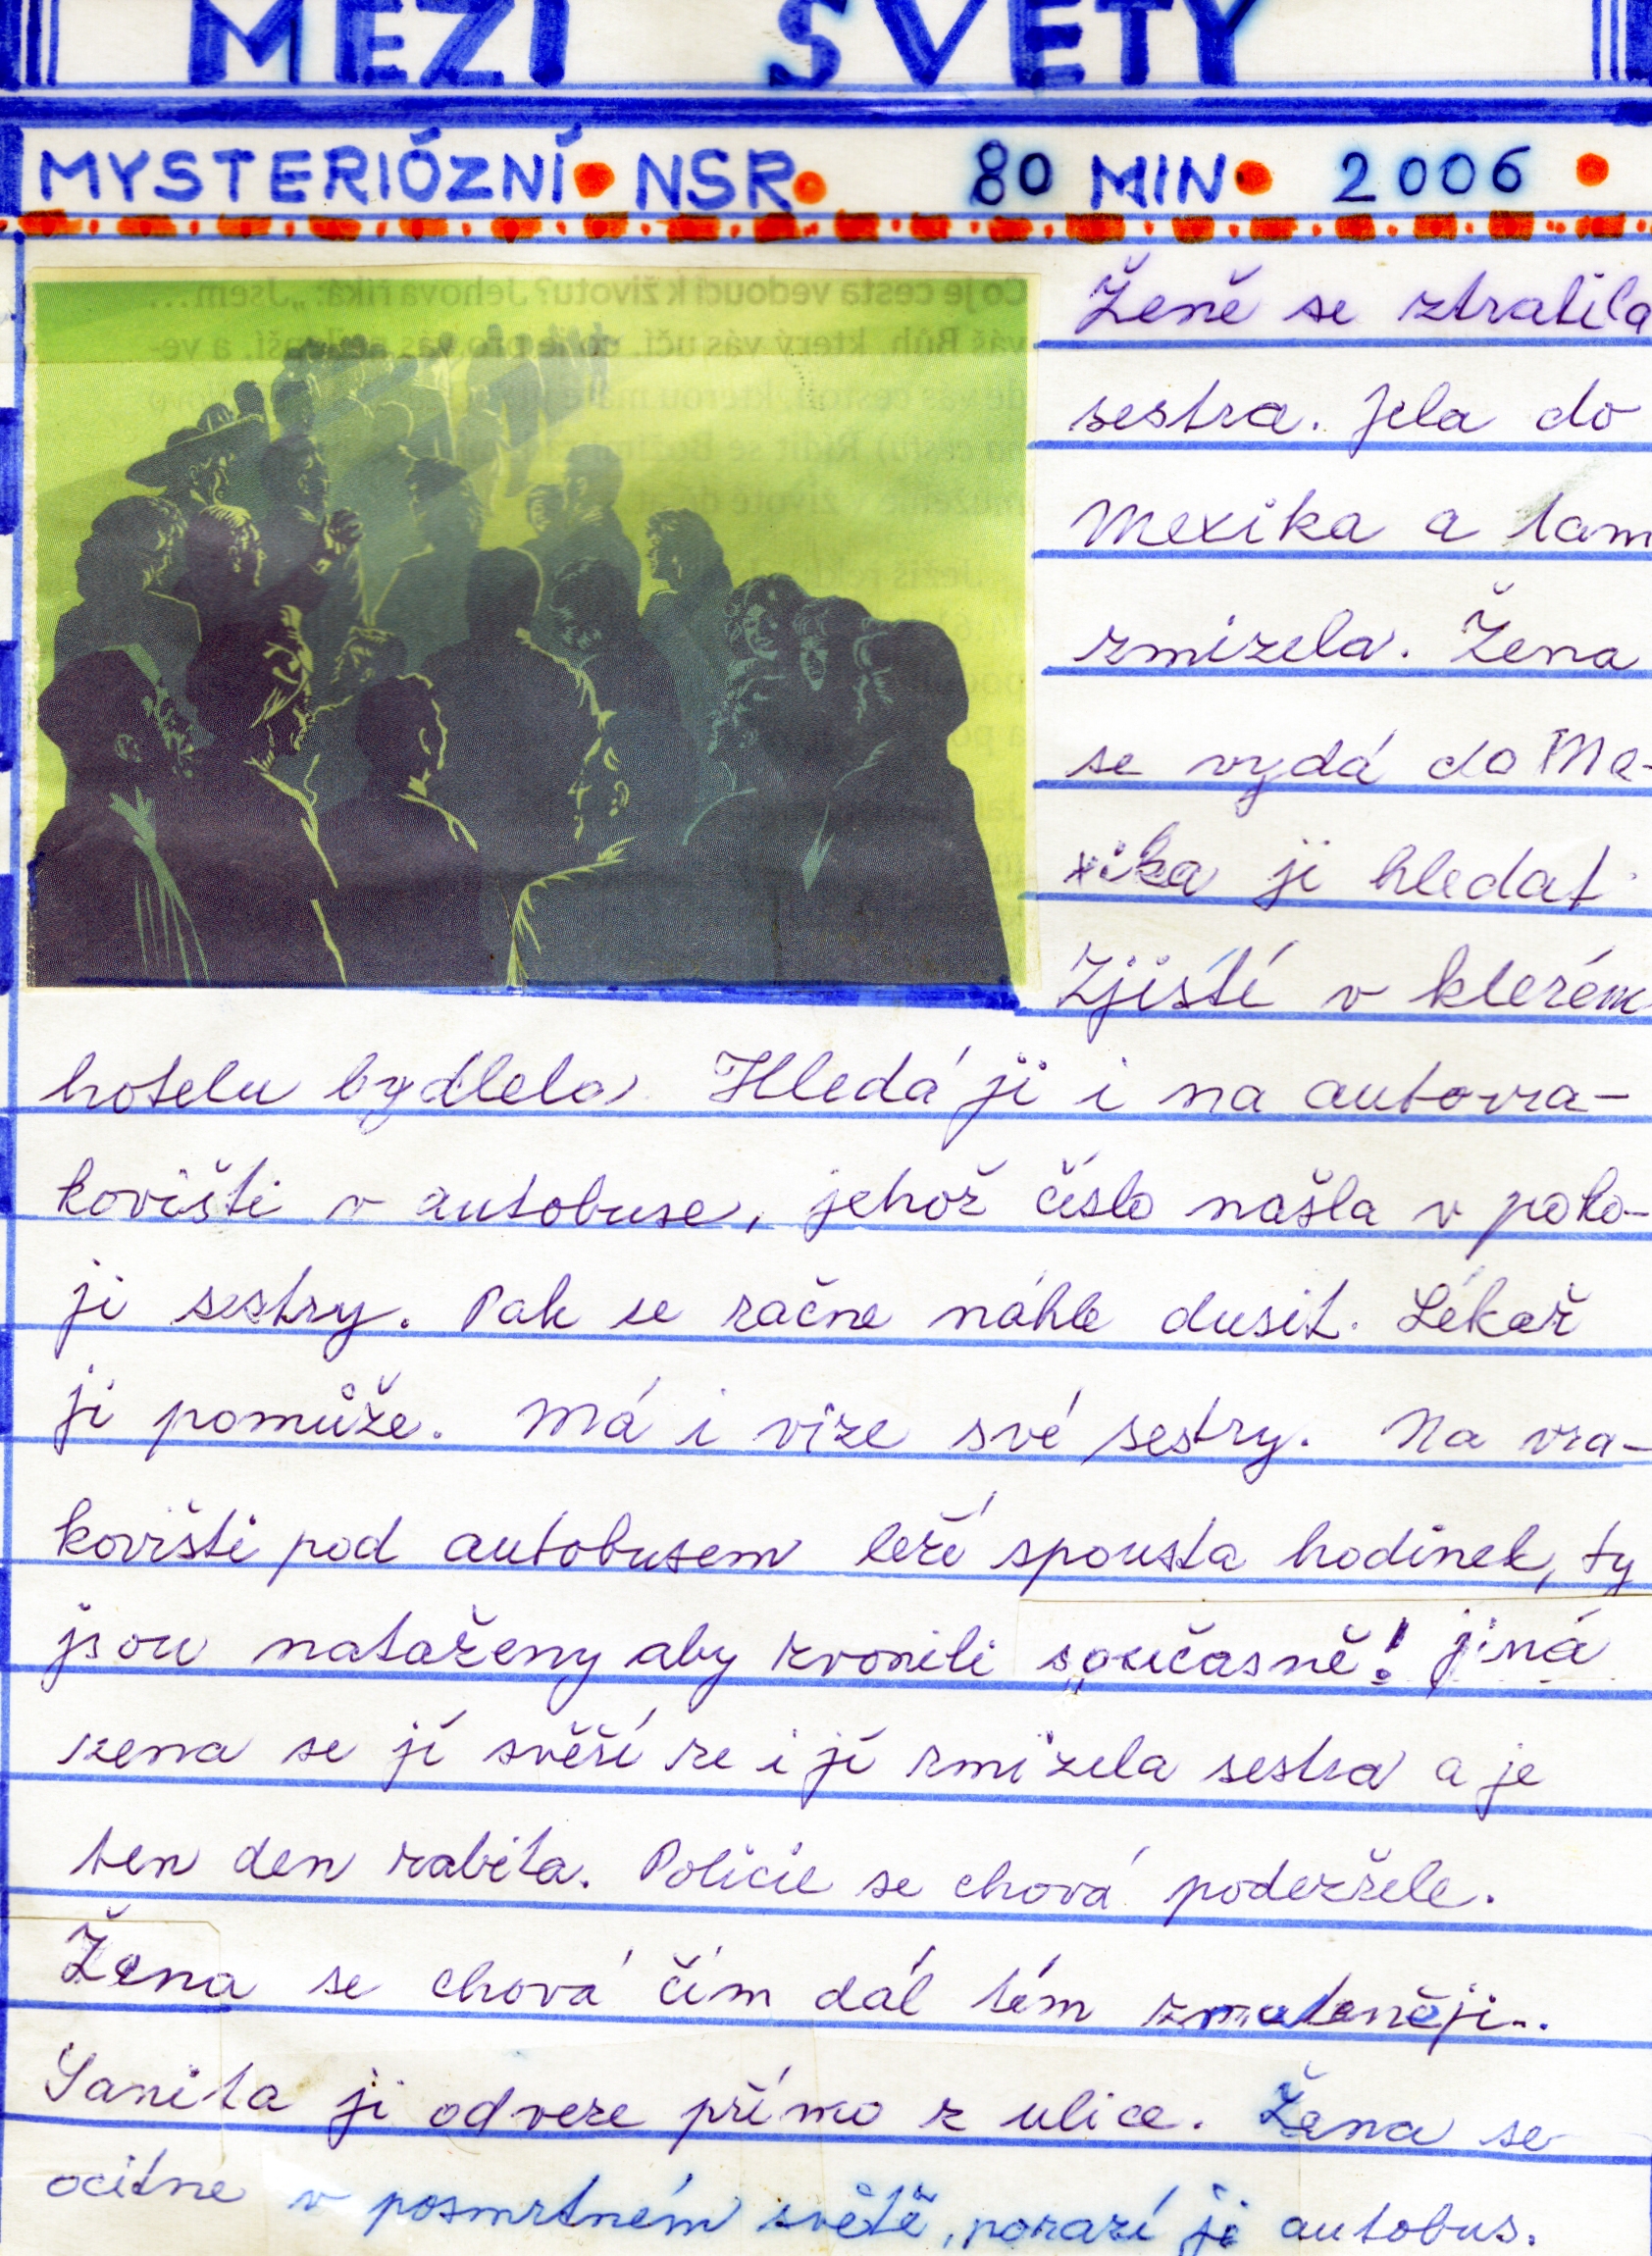 MEZI SVĚTY
MYSTERIÓZNÍ • NSR • 80 MIN • 2006 •
Co je cesta vedoucí k životu? Jehova říká: „Jsem...
váš Bůh, který vás učí,
Ženě se ztratila
sestra. Jela do
Mexika a tam
zmizela. Žena
se vydá do Me-
xika ji hledat.
Zjistí v kterém
hotelu bydlela. Hledá ji i na autovra-
kovišti v autobuse, jehož číslo našla v poko-
ji sestry. Pak se začne náhle dusit. Lékař
jí pomůže. Má i vize své sestry. Na vra-
kovišti pod autobusem leží spousta hodinek, ty
jsou nataženy aby zvonili současně! jiná
žena se jí svěří že i jí zmizela sestra a je
ten den zabita. Policie se chová podezřele.
Žena se chová čím dál tím zmateněji..
Sanita ji odveze přímo z ulice. Žena se
ocitne v posmrtném světě, porazí ji autobus.